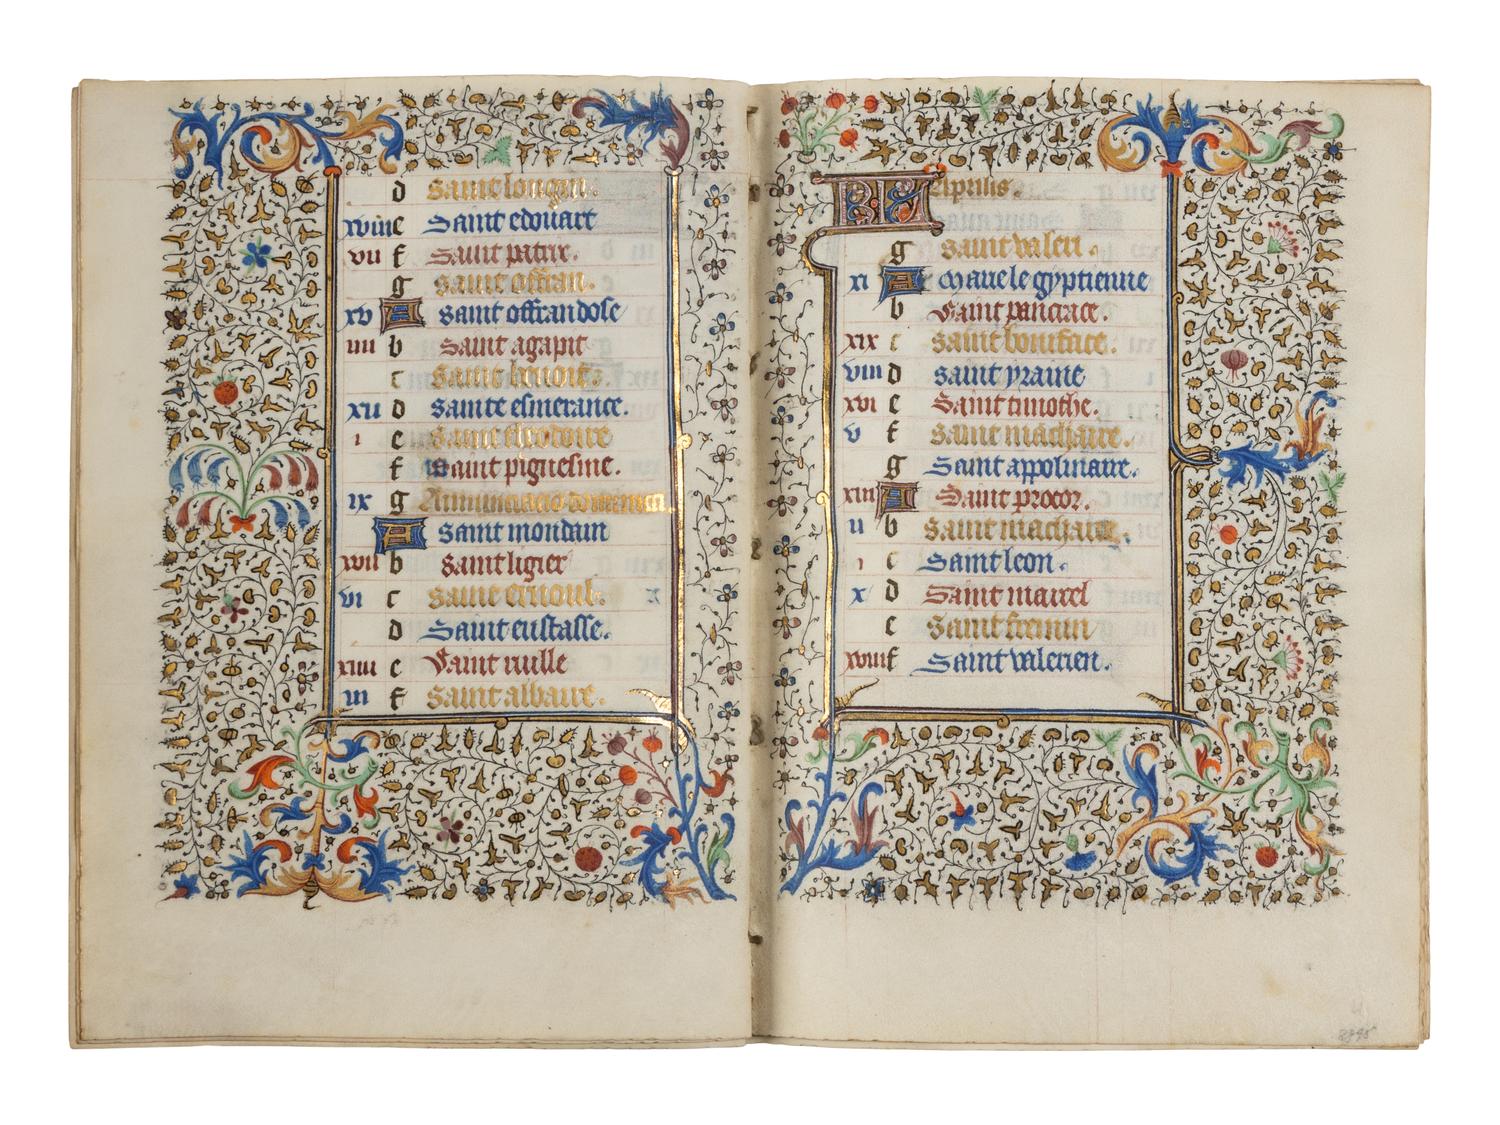 d Saint longin.
xviii e Saint edouart
vii f Saint patrix.
g Saint offran.
xv A Saint offrandose
iiii b Saint agapit
c Saint benoit.
xii d Sainte esmerance.
i e Saint theodoire
f Saint pigmesine.
ix g Annunciacio dominica
A Saint mondain
xvii b Saint ligier
vi c Saint ernoul.
d Saint eustasse.
xiiii e Saint rulle
iii f Saint albaire.
KL Aprilis.
g Saint valeri.
xi A Marie le gyptienne
b Saint pancrace.
xix c Saint boniface.
viii d Saint yraine
xvi e Saint timothe.
v f Saint machaire.
g Saint appolinaire.
xiii A Saint procor.
ii b Saint machaire.
i c Saint leon.
x d Saint marcel
e Saint fremin
xviii f Saint valerien.